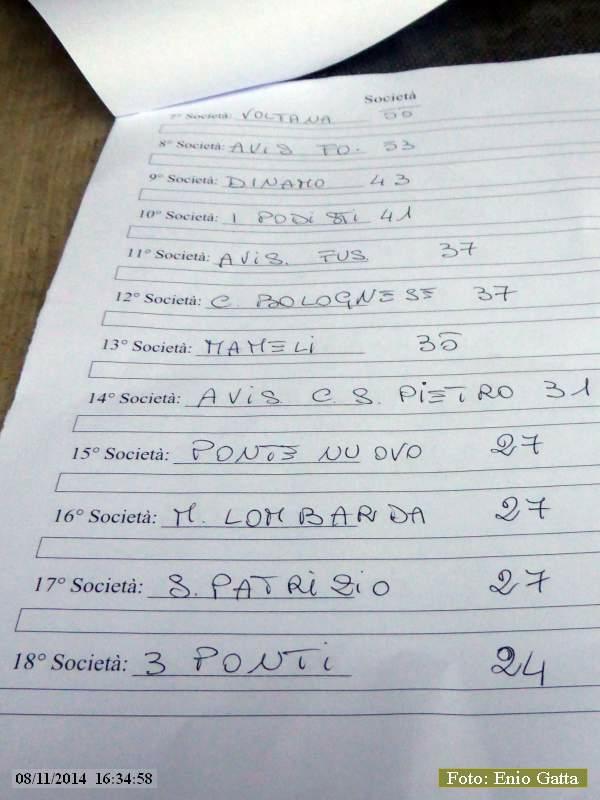 Società
7° Società: VOLTANA
8° Società: AVIS FO. 53
9° Società: DINAMO 43
10° Società: I PODISTI 41
11° Società: AVIS. FUS. 37
12° Società: C. BOLOGNESE 37
13° Società: MAMELI 35
14° Società: AVIS C. S. PIETRO 31
15° Società: PONTE NUOVO 27
16° Società: M. LOMBARDA 27
17° Società: S. PATRIZIO 27
18° Società: 3 PONTI 24
08/11/2014 16:34:58
Foto: Enio Gatta